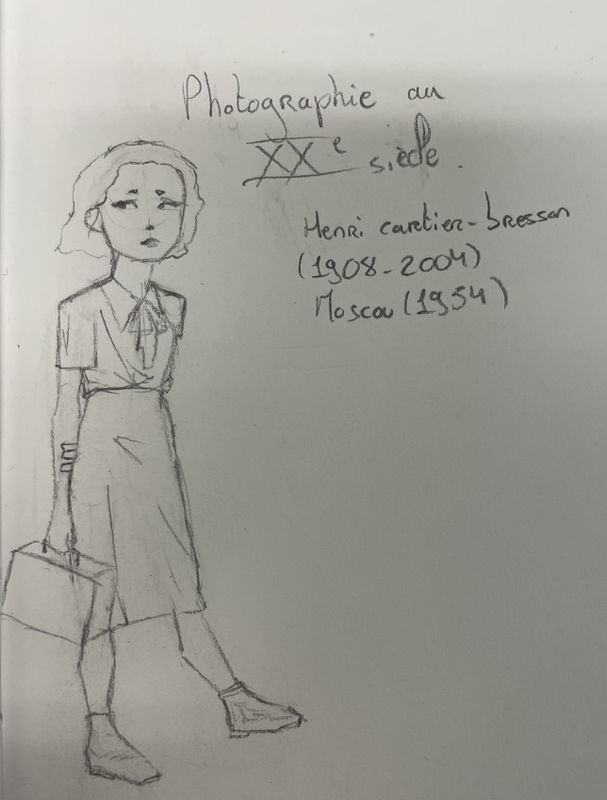 Photographie au
XXe siècle.
Henri cartier-bresson
(1908-2004)
Moscou (1954)